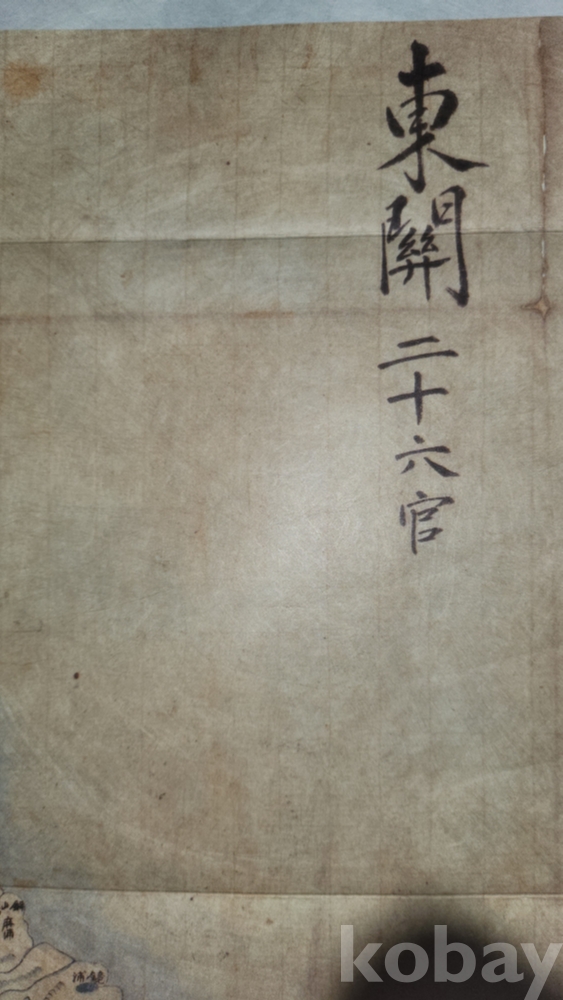 東關二十六官
kobay